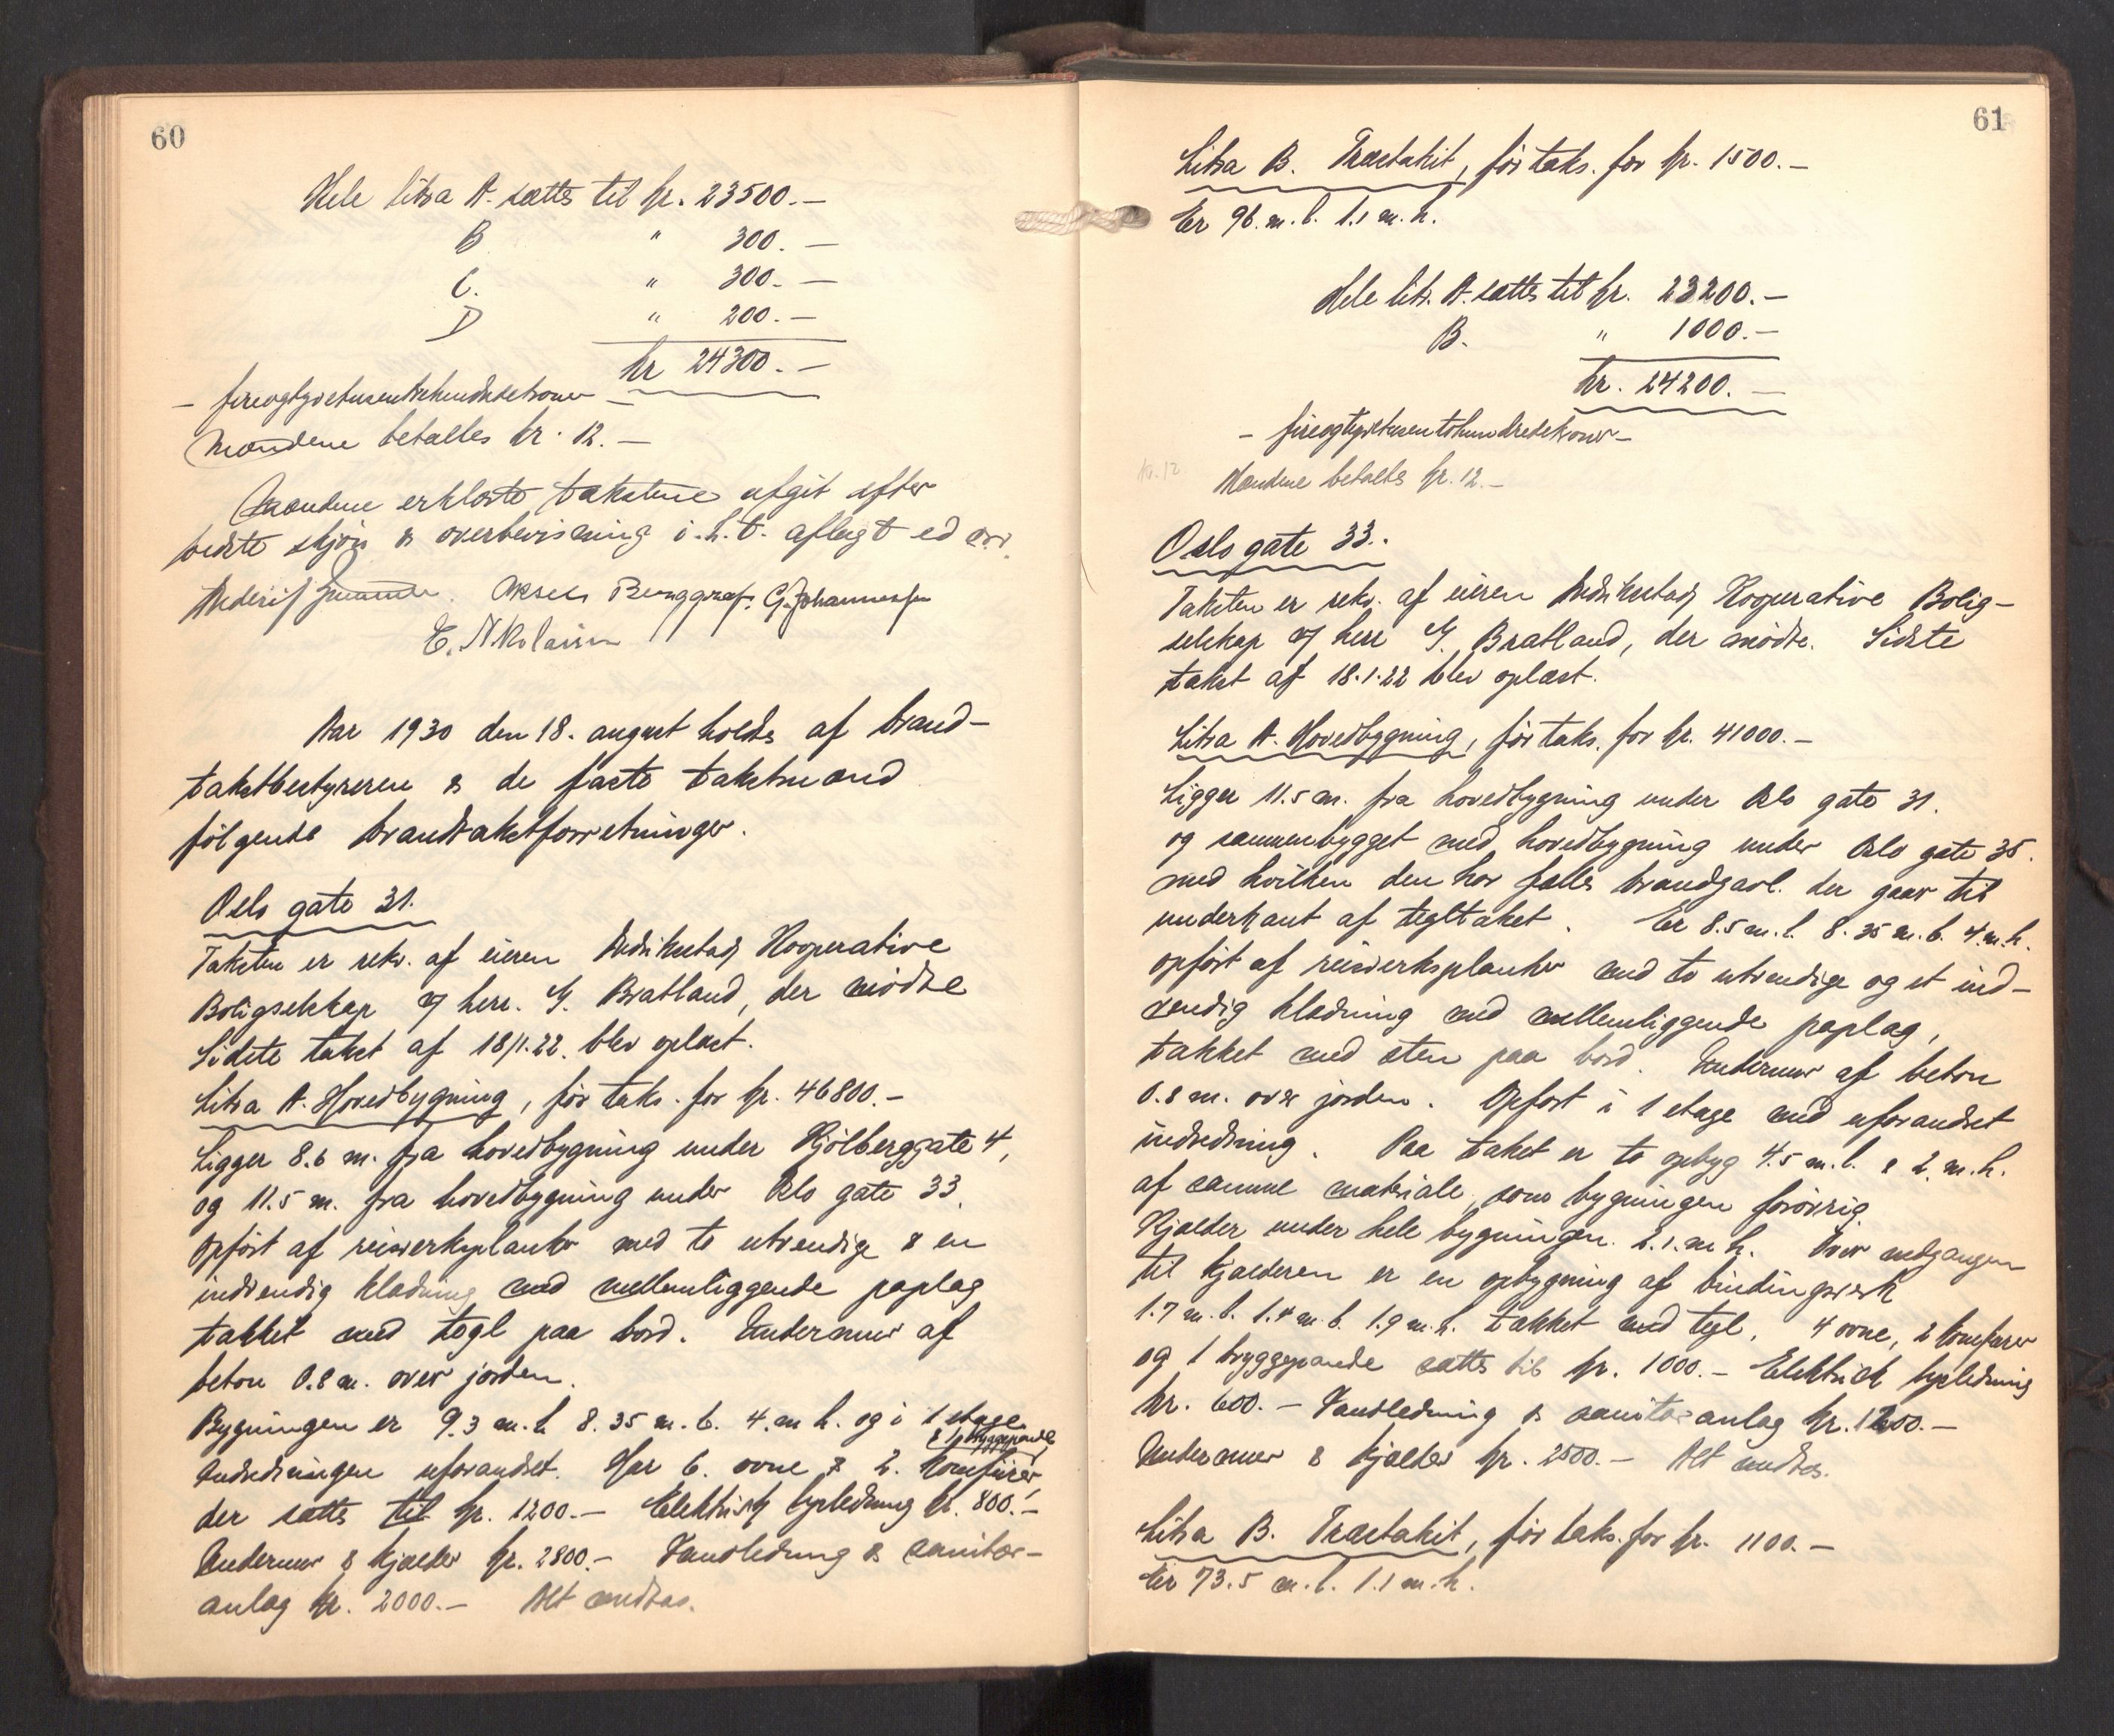 60
Hele litra A. sættes til kr. 23500.—
B " 300.—
C. " 300.—
D " 200.—
kr 24300.—
— fireogtyvetusentrehundredekroner —
Mændene betaltes kr. 12.—
Mændene erklærte taksterne afgit efter
bedste skjøn & overbevisning i.h.t. aflagt ed
Aksel Burggraf. G. Johannesen
E. Nikolaisen
Aar 1930 den 18. august holdts af brand-
takstbestyreren & de faste takstmænd
følgende brandtakstforretninger.
Oslo gate 31.
Taksten er rekv. af eieren Fredrikstad Kooperative
Boligselskap v/ herr. G. Bratland, der mødte
Sidste takst af 18/1.22. blev oplæst.
Litra A. Hovedbygning, før taks. for kr. 46800.—
Ligger 8.6 m. fra hovedbygning under Kjølberggate 4,
og 11.5 m. fra hovedbygning under Oslo gate 33.
Opført af reisverksplanker med to utvendige & en
indvendig klædning med mellemliggende paplag
tækket med tegl paa bord. Undermur af
beton 0.8 m. over jorden.
Bygningen er 9.3 m. l. 8.35 m. b. 4. m h. og i 1 etage.
& 1 bryggepande
Indredningen uforandret. Har 6. ovne & 2. komfurer,
der sættes til kr. 1200.— Elektrisk lysledning kr. 800.—
Undermur & kjælder kr. 2800.— Vandledning & sanitær-
anlæg kr. 2000.— Alt medtas.
61
Litra B. Træstakit, før taks. for kr. 1500.—
Er 96. m. l. 1.1 m. h.
Hele litr. A. sættes til kr. 23200.—
B. " 1000.—
kr. 24200.—
— fireogtyvetusentohundredekroner —
kr. 12
Mændene betaltes kr. 12.—
Oslo gate 33.
Taksten er rekv. af eieren Fredrikstad Kooperative Bolig-
selskap v/ herr G. Bratland, der mødte. Sidste
takst af 18.1.22 blev oplæst.
Litra A. Hovedbygning, før taks. for kr. 41000.—
Ligger 11.5 m. fra hovedbygning under Oslo gate 31.
og sammenbygget med hovedbygning under Oslo gate 35.
med hvilken den har fælles brandgavl. der gaar til
underkant af tegltaket. Er 8.5 m. l. 8.35 m. b. 4. m. h.
opført af reisverksplanker med to utvendige og et ind-
vendig klædning med mellemliggende paplag,
tækket med sten paa bord. Undermur af beton
0.8 m. over jorden. Opført i 1 etage med uforandret
indredning. Paa taket er to opbyg 4.5 m. l. & 2. m. h.
af samme matriale, som bygningen forøvrig.
Kjælder under hele bygningen. 2.1. m h. Over nedgangen
til kjælderen er en opbygning af bindingsverk
1.7 m. l. 1.4 m. b. 1.9 m. h. tækket med tegl. 4 ovne, 2 komfurer
og 1 bryggepande sættes til kr. 1000.— Elektrisk lysledning
kr. 600.— Vandledning & sanitæranlæg kr. 1200.—
Undermur & kjælder kr. 2500.— Alt medtas.
Litra B. Træstakit, før taks. for kr. 1100.—
Er 73.5 m. l. 1.1 m. h.